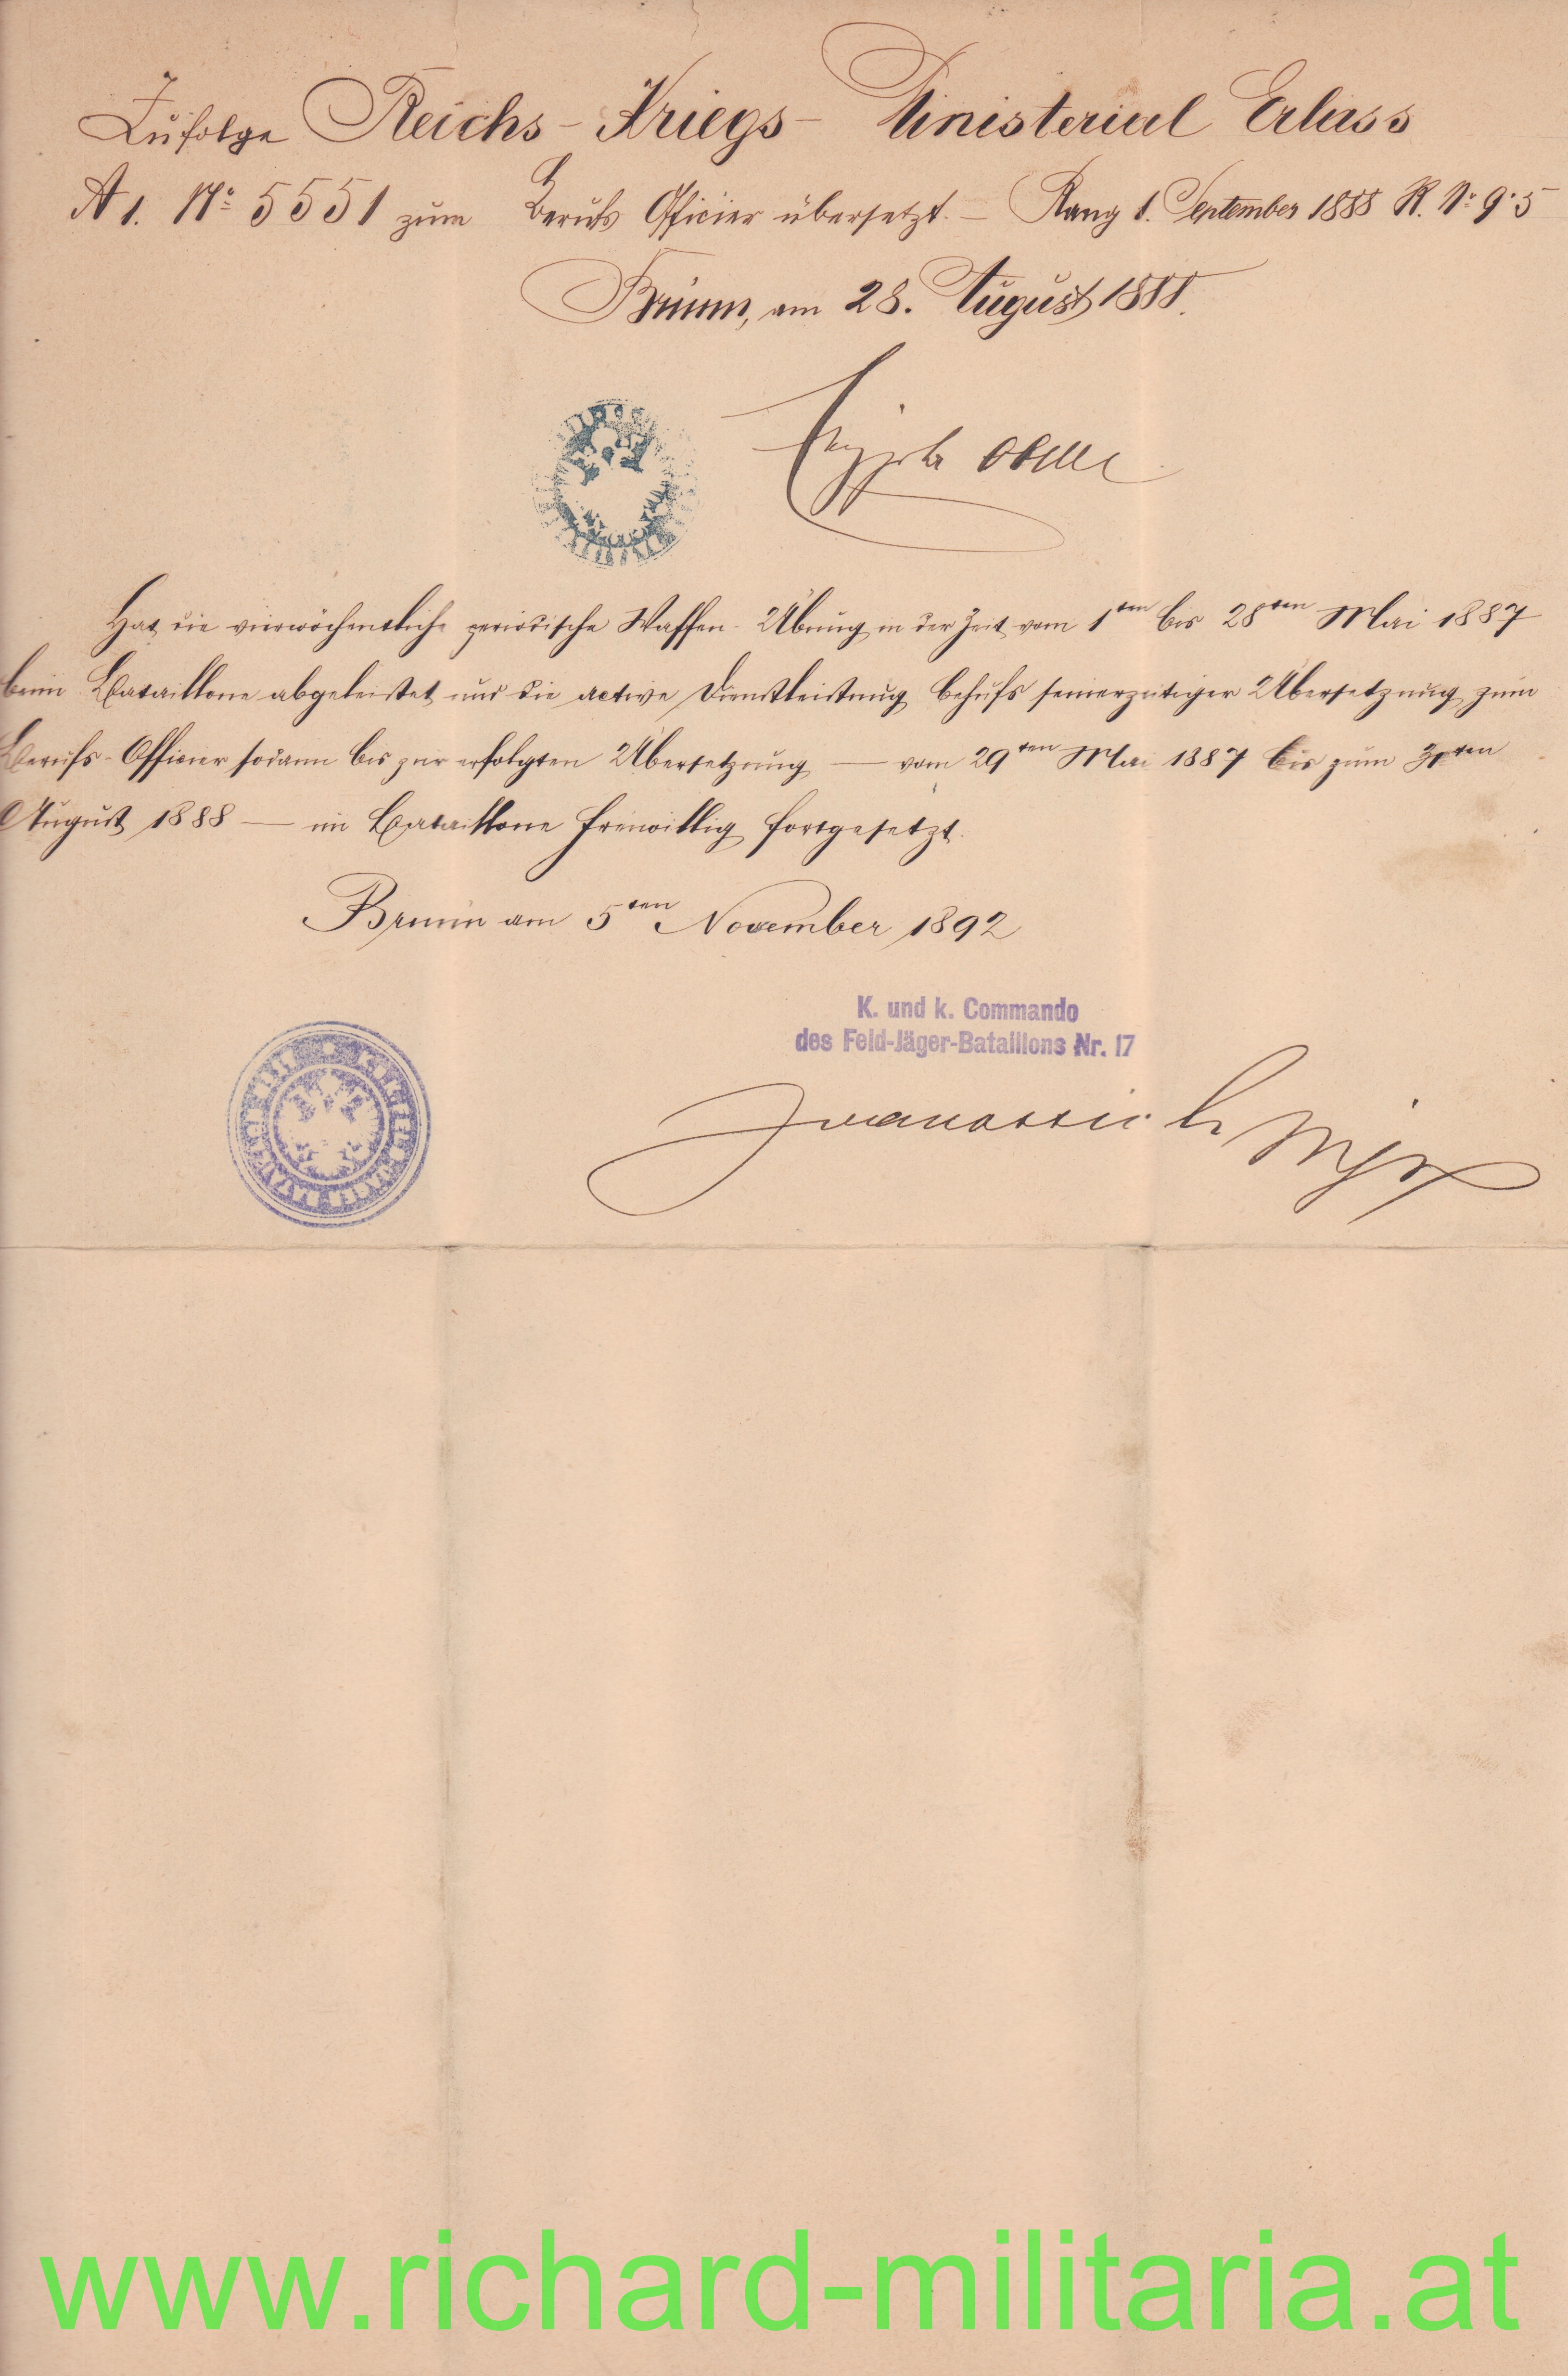 Zufolge Reichs-Kriegs-Ministerial Erlass
A 1. No 5551 zum Berufs Officier übersetzt. — Rang 1. September 1888 R. No 9·5
Brünn, am 28. August 1888.
Hat die vierwöchentliche periodische Waffen-Übung in der Zeit vom 1ten bis 28ten Mai 1887
beim Bataillone abgeleistet und die active Dienstleistung behufs seinerzeitiger Übersetzung zum
Berufs-Officier sodann bis zur erfolgten Übersetzung — vom 29ten Mai 1887 bis zum 31ten
August 1888 — im Bataillone freiwillig fortgesetzt.
Brünn am 5ten November 1892
K. und k. Commando
des Feld-Jäger-Bataillons Nr. 17
www.richard-militaria.at